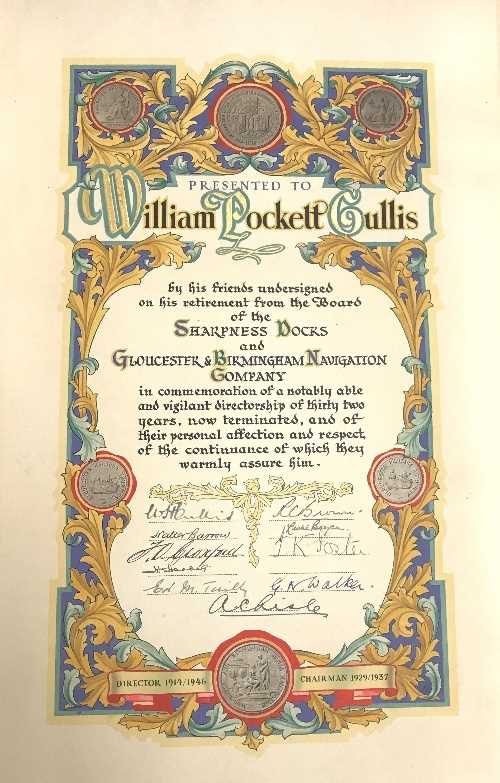 PRESENTED TO
William Pockett Cullis
by his friends undersigned
on his retirement from the Board
of the
SHARPNESS DOCKS
and
GLOUCESTER & BIRMINGHAM NAVIGATION
COMPANY
in commemoration of a notably able
and vigilant directorship of thirty two
years, now terminated, and of
their personal affection and respect,
of the continuance of which they
warmly assure him.
Walter Barrow
G. N. Walker.
DIRECTOR 1914/1946
CHAIRMAN 1929/1937